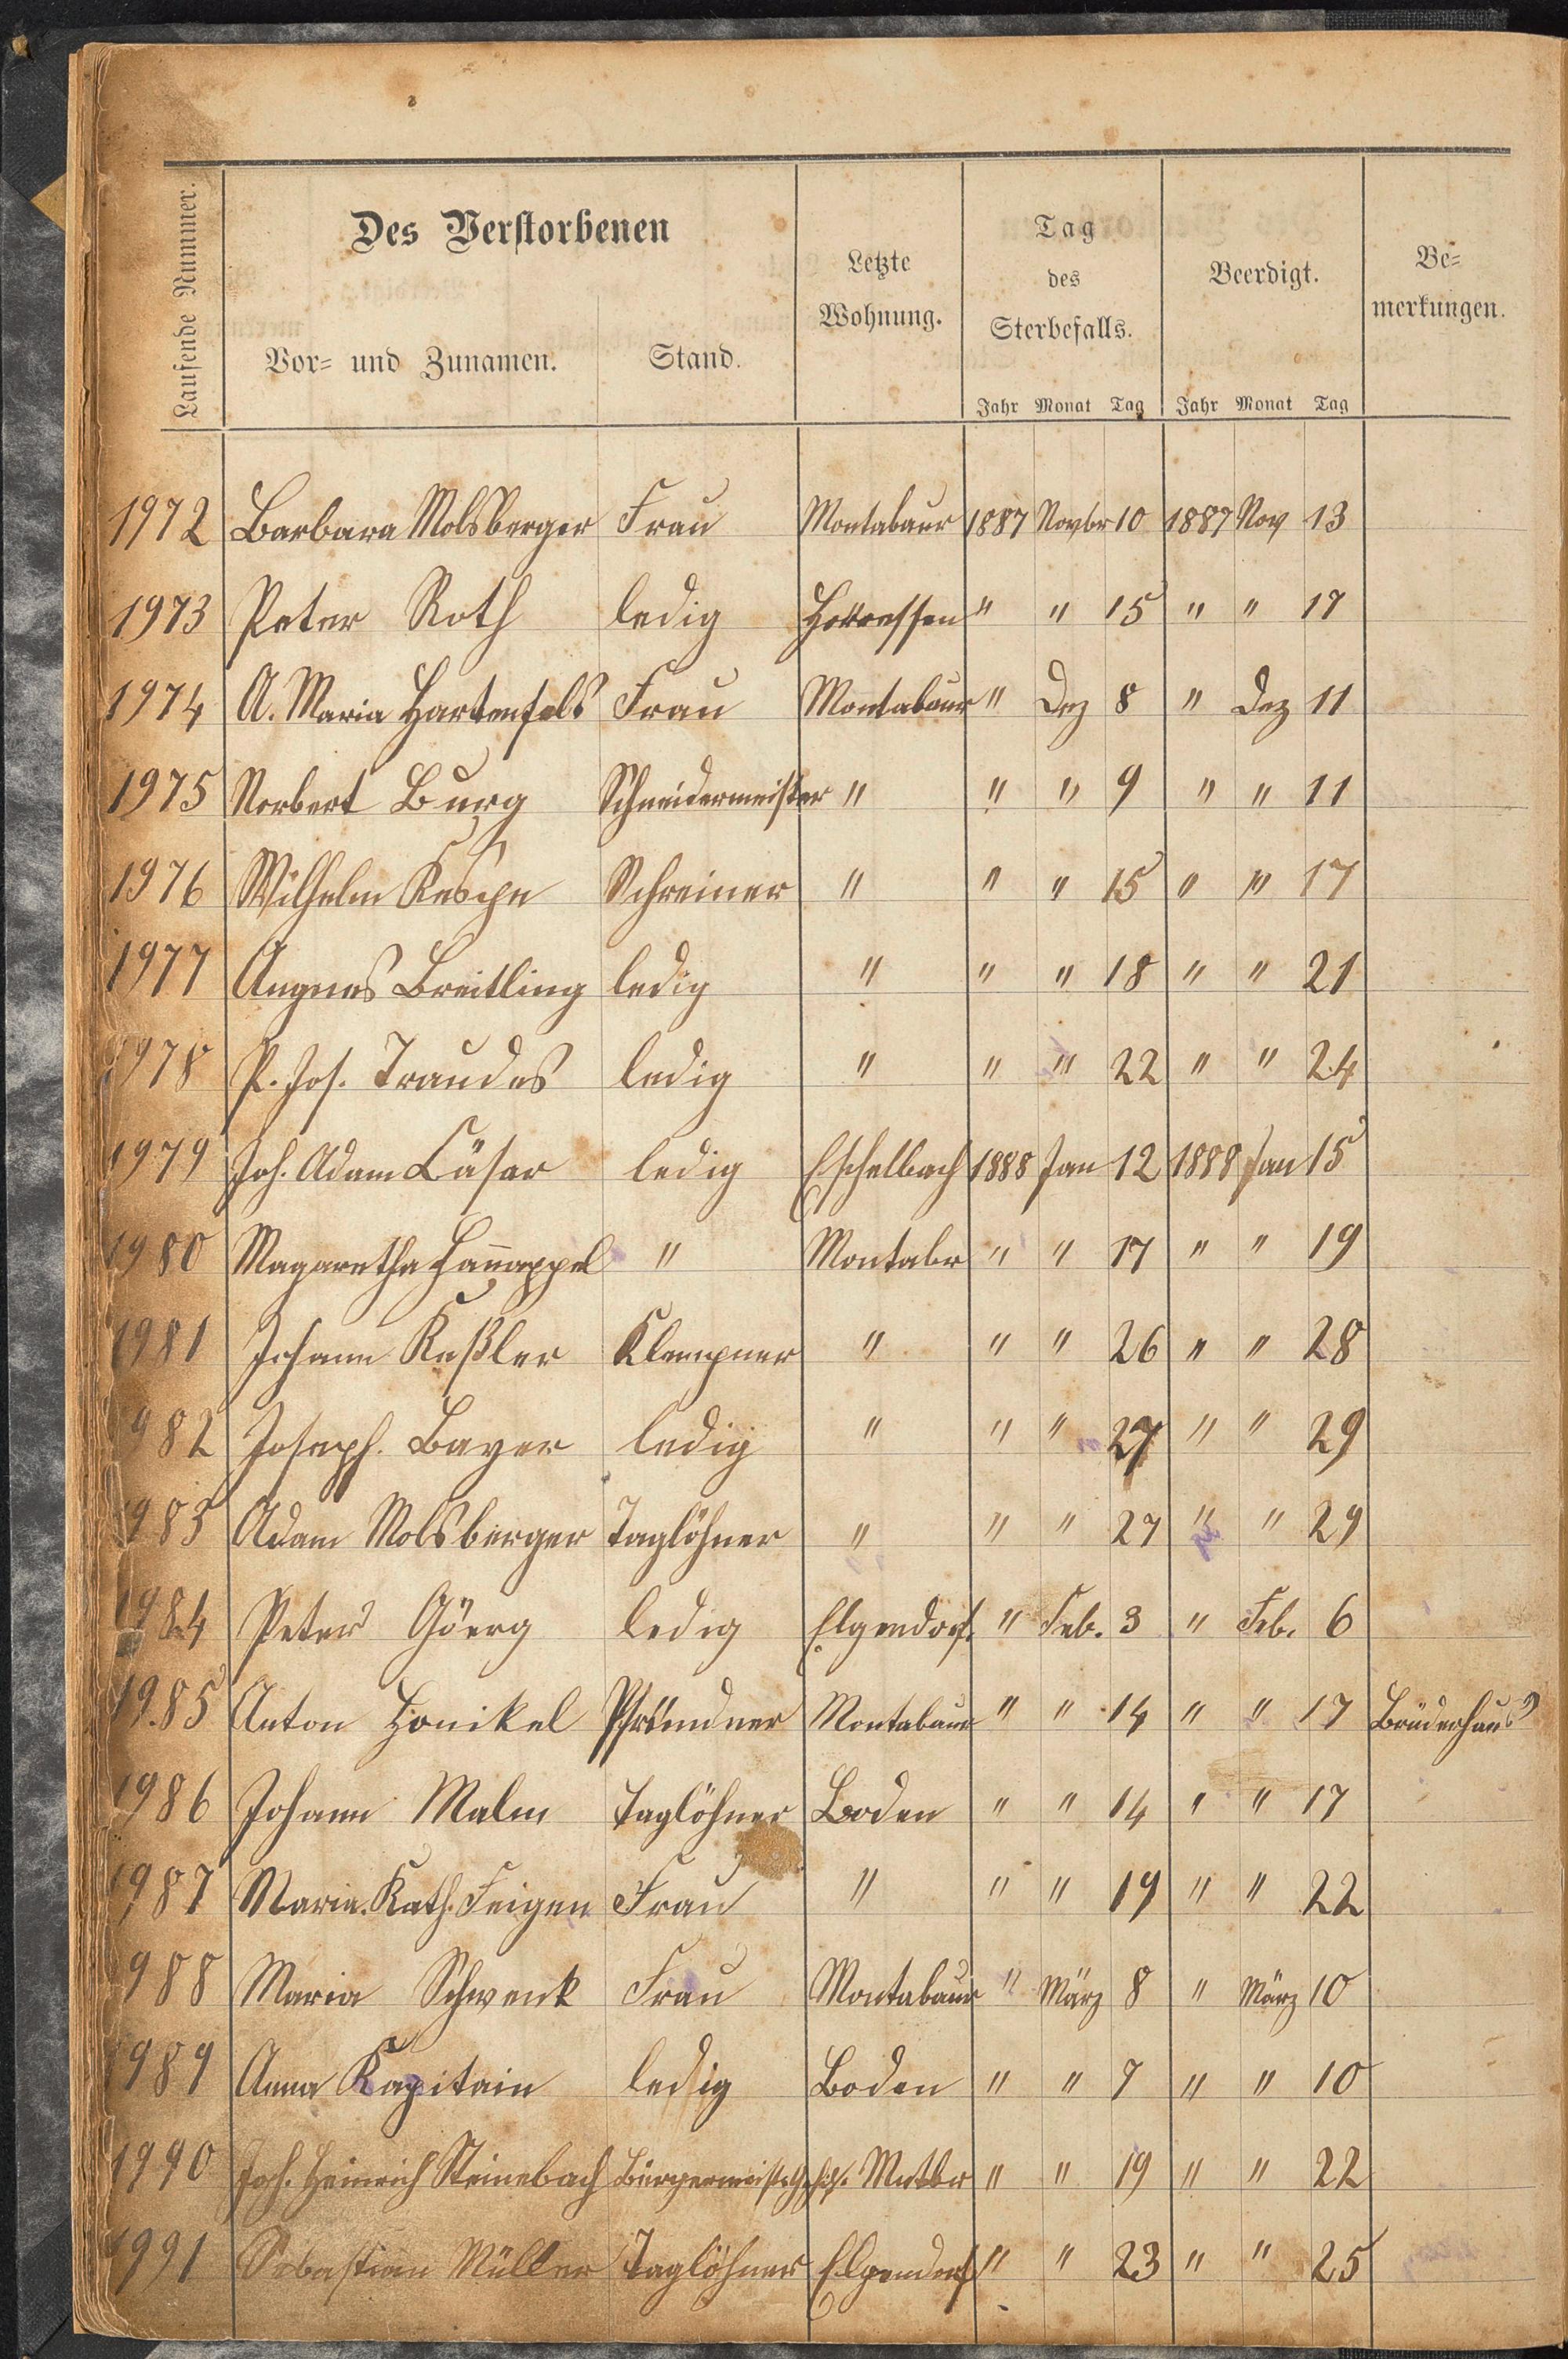 Laufende Nummer.
Des Verstorbenen
Vor- und Zunamen. Stand.
Letzte Wohnung.
Tag des Sterbefalls.
Beerdigt.
Be= merkungen.
Jahr Monat Tag Jahr Monat Tag
1972 Barbara Molsberger Frau Montabaur 1887 Novbr 10 1887 Nov 13
1973 Peter Roth ledig Horressen " " 15 " " 17
1974 A. Maria Hartenfels Frau Montabaur " Dez 8 " Dez 11
1975 Norbert Burg Schneidermeister " " " 9 " " 11
1976 Wilhelm Schreiner " " " 15 " " 17
1977 Angnes Breitling ledig " " " 18 " " 21
1978 P. Jos. Traudes ledig " " " 22 " " 24
1979 Joh. Adam Cäsar ledig Eschelbach 1888 Jan 12 1888 Jan 15
1980 Magaretha Han̄appel " Montabr " " 17 " " 19
1981 Johann Keßler Klempner " " " 26 " " 28
1982 Joseph. Bayer ledig " " " 27 " " 29
1983 Adam Molsberger Taglöhner " " " 27 " " 29
1984 Peter Göerg ledig Elgendorf. " Feb. 3 " Feb. 6
1985 Anton Honikel Pfründner Montabaur " " 14 " " 17 Brüderhaus
1986 Johann Malm Taglöhner Boden " " 14 " " 17
1987 Maria. Kath. Feigen Frau " " " 19 " " 22
1988 Maria Schwenk Frau Montabaur " März 8 " März 10
1989 Anna Kapitain ledig Boden " " 7 " " 10
1990 Joh. Heinrich Steinebach " " 19 " " 22
1991 Sebastian Müller Taglöhner Elgendorf " " 23 " " 25